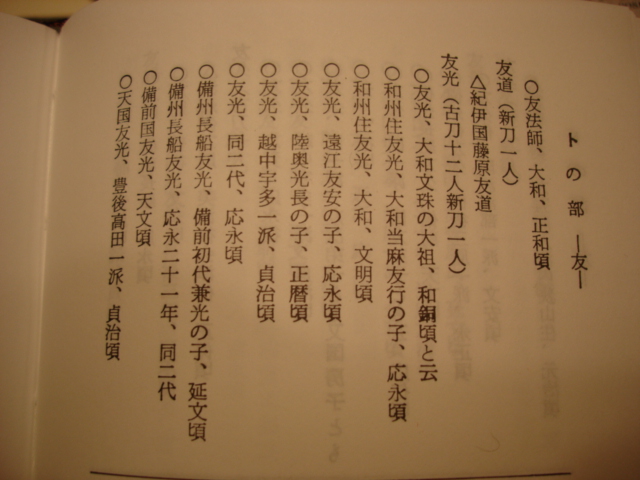 トの部 ―友―
○友法師、大和、正和頃
友道（新刀一人）
△紀伊国藤原友道
友光（古刀十二人新刀一人）
○友光、大和文珠の大祖、和銅頃と云
○和州住友光、大和当麻友行の子、応永頃
○和州住友光、大和、文明頃
○友光、遠江友安の子、応永頃
○友光、陸奥光長の子、正暦頃
○友光、越中宇多一派、貞治頃
○友光、同二代、応永頃
○備州長船友光、備前初代兼光の子、延文頃
○備州長船友光、応永二十一年、同二代
○備前国友光、天文頃
○天国友光、豊後高田一派、貞治頃